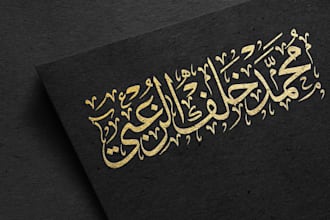 محمد خلف الزعبي